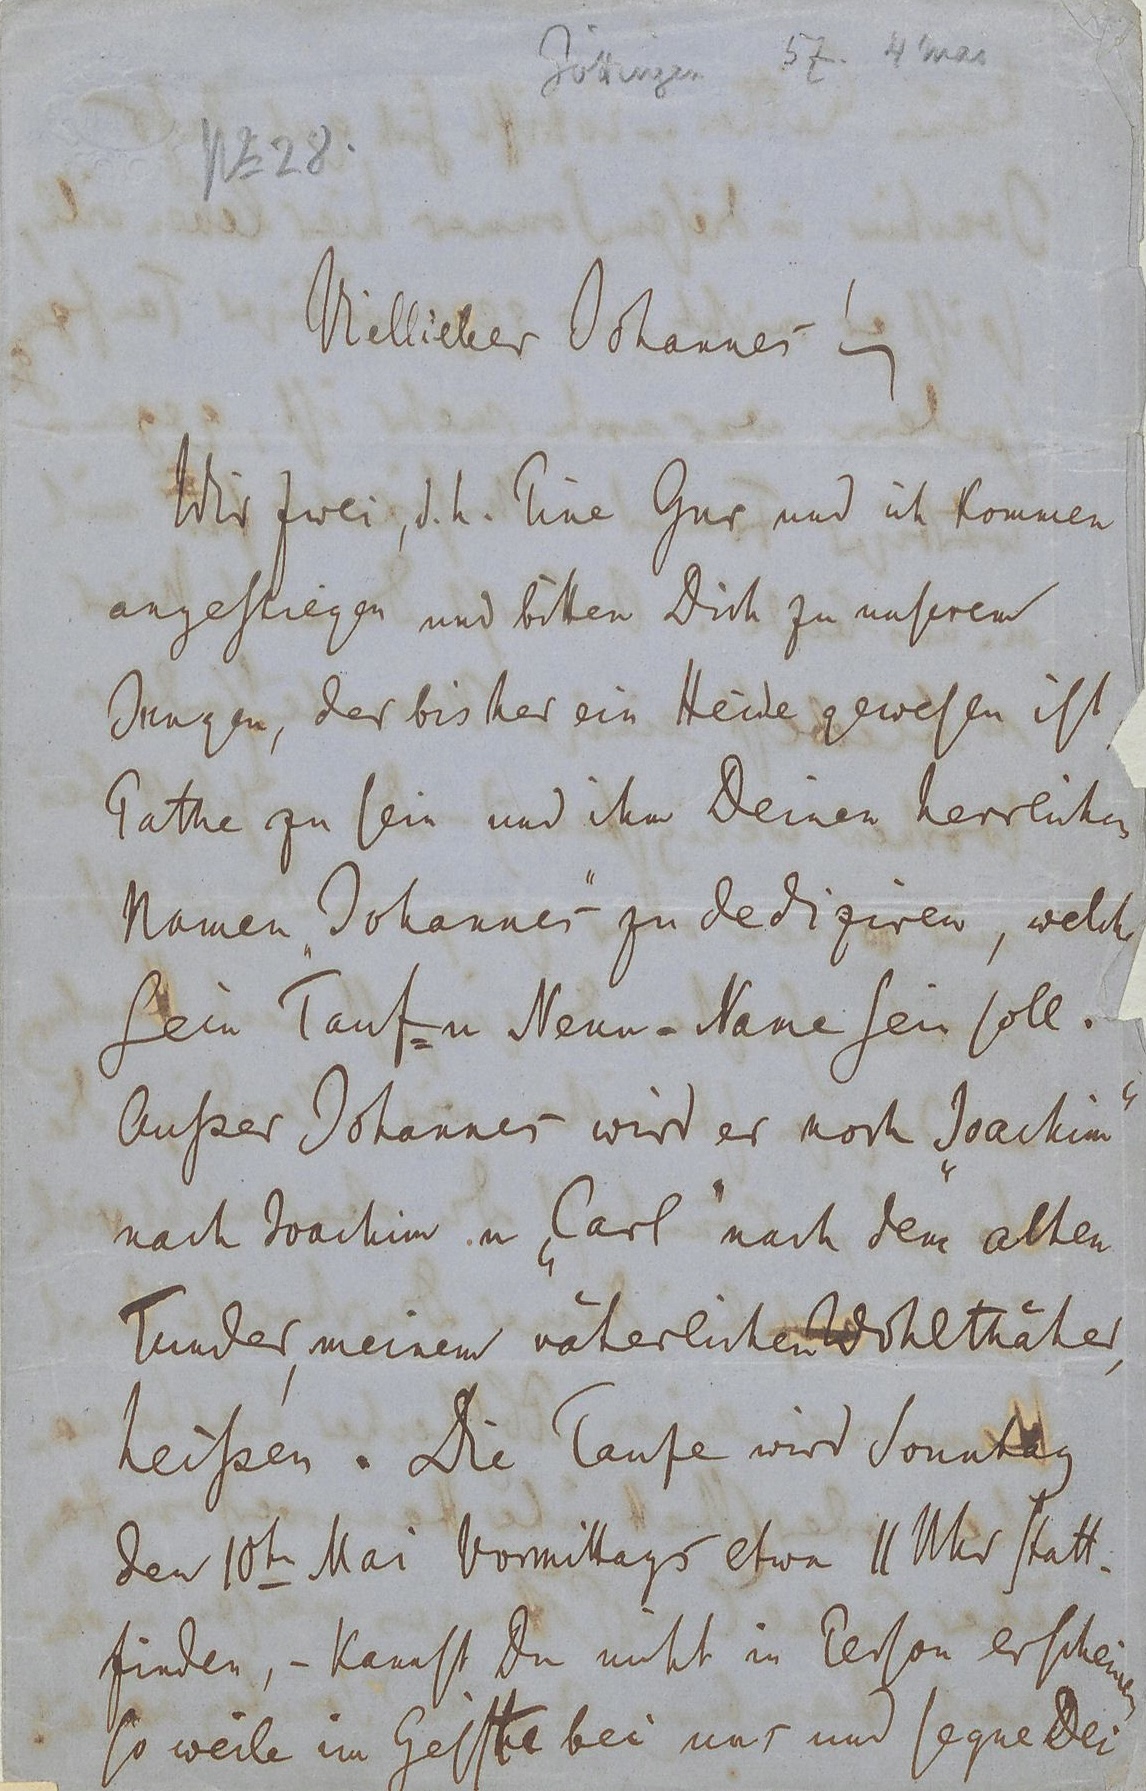 Göttingen 57. 4 Mai
No 28.
Viellieber Johannes!
Wir zwei, d. h. Pine Gur und ich kommen
angestiegen und bitten Dich zu unserem
Jungen, der bisher ein Heide gewesen ist,
Pathe zu sein und ihm Deinen herrlichen
Namen „Johannes“ zu dediziren, welch
sein Tauf= u Nenn-Name sein soll.
Außer Johannes wird er noch „Joachim“
nach Joachim u „Carl“ nach dem alten
Tunder, meinem väterlichen Wohlthäter,
heißen. Die Taufe wird Sonntag
den 10ten Mai Vormittags etwa 11 Uhr statt-
finden, – kannst Du nicht in Person erscheinen
so weile im Geiste bei uns und segne Dei